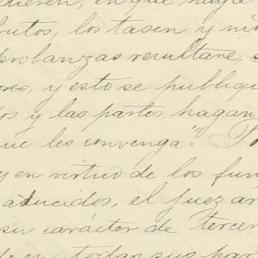 dieren, en que haya
utos, los tasen y mo
probanzas resultare, s
res, y esto se publiqu
os y las partes hagan
que les convenga". Po
y en virtud de los fun
aducidos, el juez ar
su carácter de tercer
de en todas sus par